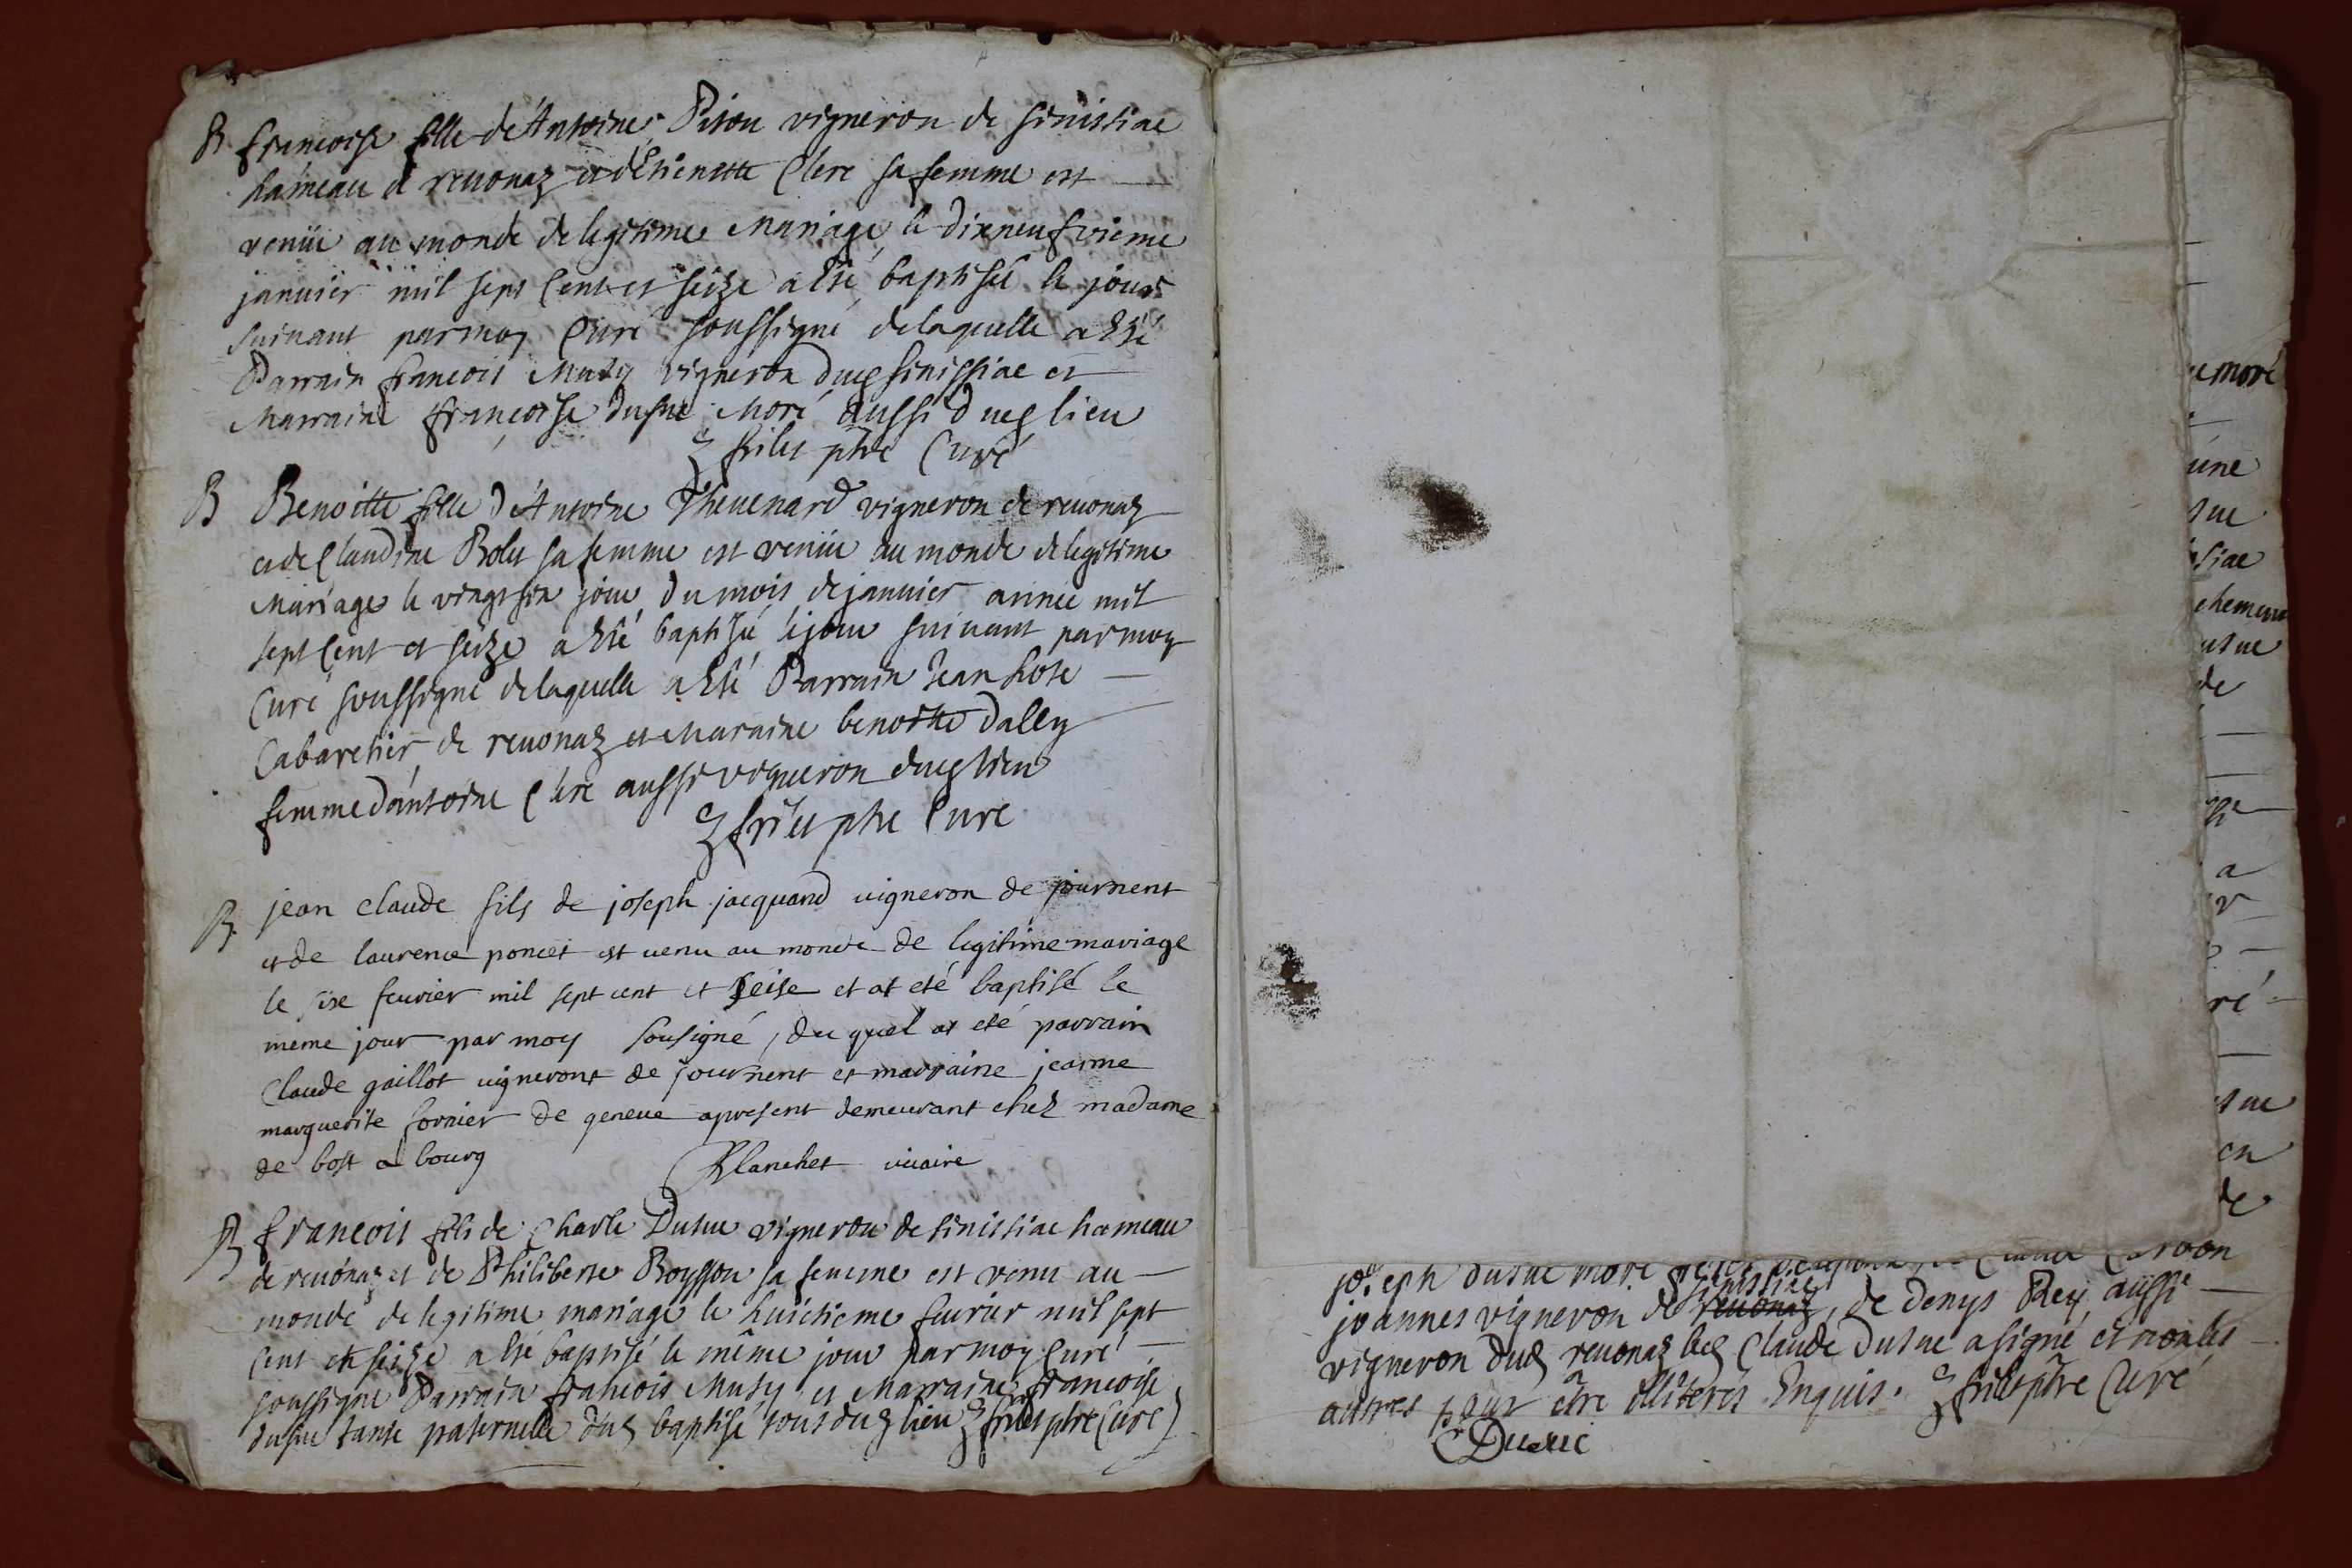 B francoise fille d'Antoine Piton vigneron de sinissiac
hameau de reuonaz et d'Etienette Clere sa femme est
venüe au monde de legitime Mariage le dixneufvieme
januier mil sept Cent et seize a été baptisée le jour
suivant par moy Curé soussigné de laquelle a été
Parrain francois Muty vigneron dud sinissiac et
Marraine françoise dusue Moré aussi dud lieu
frilet ptre Curé
B Benoitte fille d'Antoine Theuenard vigneron de reuonaz
et de Claudine Bolet sa femme est venüe au monde de legitime
Mariage le vingt six jour du mois de januier année mil
sept Cent et seize a été baptisée le jour suivant par moy
Curé soussigné de laquelle a été Parrain Jean hote
Cabaretier de reuonaz et Maraine benoitte dally
femme d'antoine Clere aussi vigneron dud lieu
frilet ptre Curé
B. jean claude fils de joseph jacquand uigneron de journent
et de laurence poncet est uenu au monde de legitime mariage
le sixe feurier mil sept cent et seise et at eté baptisé le
même jour par moy sousigné, du quel at eté parrain
Claude gaillot uigneront de journent et marraine jeanne
marguerite fornier de geneue apresent demeurant chez madame
de bost a bourg Blanchet uicaire
B francois fils de Charle Dusue vigneron de sinissiac hameau
de reuonaz et de Philiberte Boysson sa femme est venu au
monde de legitime mariage le huictieme feurier mil sept
Cent et seize a été baptisé le même jour par moy Curé
soussigné Parrain francois Muty et Marraine francoise
dusue tante paternelle dud baptisé tous dud lieu frilet ptre Curé
emoré
une
sue
siac
chemene
usue
de
a
r
ré
sue
en
de
joseph dusue moré Claude Carron
sinissiac
joannes vigneron de reuonaz, de denys Rey aussi
vigneron dud reuonaz led Claude dusue a signé et non les
autres pour être illiterés Enquis. frilet ptre Curé
Dusue